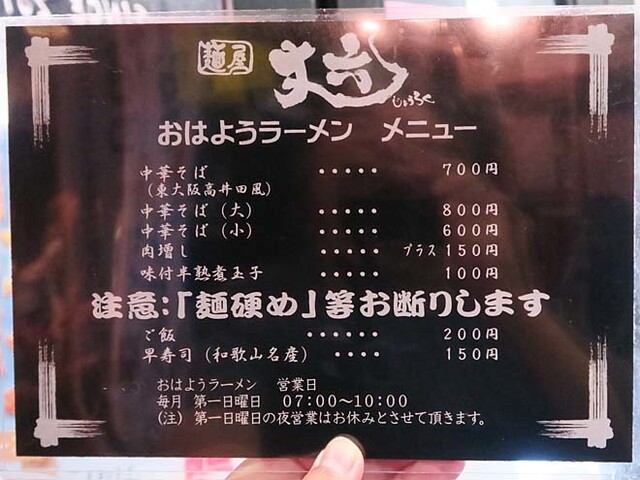 麺屋 丈六
じょうろく
おはようラーメン メニュー
中華そば ・・・・・ 700円
(東大阪高井田風)
中華そば (大) ・・・・・ 800円
中華そば (小) ・・・・・ 600円
肉増し ・・・・・ プラス 150円
味付半熟煮玉子 ・・・・・ 100円
注意:「麺硬め」等お断りします
ご飯 ・・・・・・ 200円
早寿司 (和歌山名産) ・・・・ 150円
おはようラーメン 営業日
毎月 第一日曜日 07:00〜10:00
(注) 第一日曜日の夜営業はお休みとさせて頂きます。